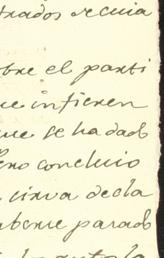 trados se cuia
bre el parti
ue infieren
ue se ha dado
ero concluio
a sirva decla
aberme parado